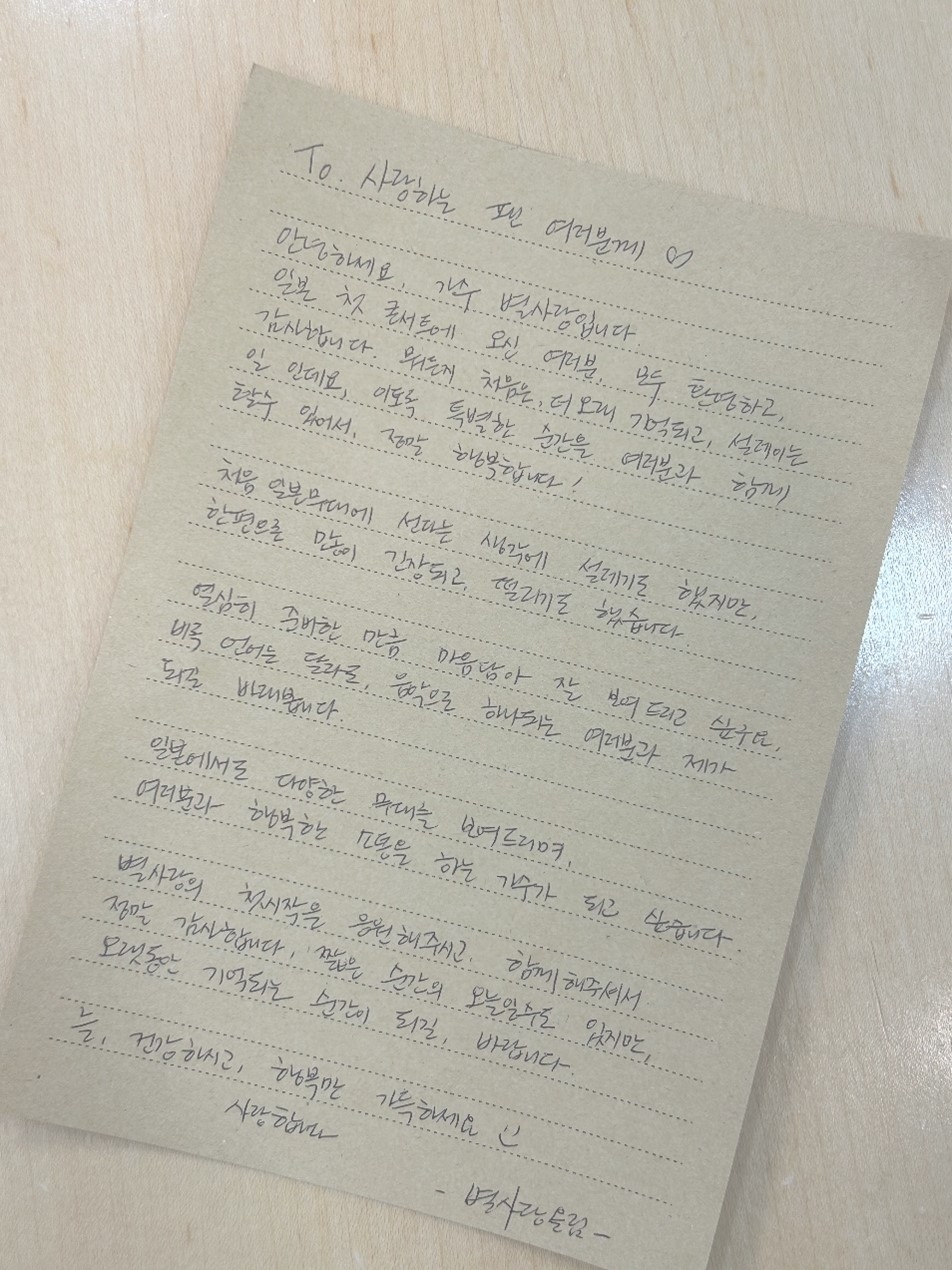 To. 사랑하는 팬 여러분께 ♡
안녕하세요, 가수 별사랑입니다.
일본 첫 콘서트에 오신 여러분, 모두 환영하고,
감사합니다. 뭐든지 처음은, 더 오래 기억되고, 설레이는
일 인데요, 이토록 특별한 순간을 여러분과 함께
할수 있어서, 정말 행복합니다!
처음 일본무대에 선다는 생각에 설레기도 했지만,
한편으론 많이 긴장되고, 떨리기도 했습니다.
열심히 준비한 만큼 마음담아 잘 보여드리고 싶구요,
비록 언어는 달라도, 음악으로 하나되는 여러분과 제가
되길 바래봅니다.
일본에서도 다양한 무대를 보여드리며,
여러분과 행복한 소통을 하는 가수가 되고 싶습니다
별사랑의 첫시작을 응원해주시고, 함께해주셔서
정말 감사합니다, 짧은 순간의 오늘일수도 있지만,
오랫동안 기억되는 순간이 되길, 바랍니다
늘, 건강하시고, 행복만 가득하세요 :)
사랑합니다
- 별사랑올림 -